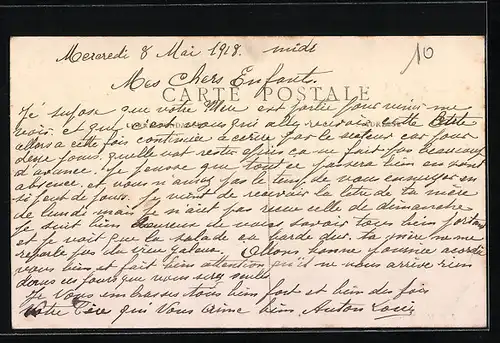 Mercredi 8 Mai 1918. midi
10
Mes Chers Enfants.
CARTE POSTALE
Je supose que votre Mère est partie pour venir me
voir. et que c'est vous qui aller recevoir cette Petite
allors a cette fois continuer a écrire par le secteur car pour
deux jours quelle vat rester épuis ça ne fait pas beaucoup
d'avance. Je pense que tout ce passera bien en vont
absence. et vous n'aurez pas le temp de vous ennuyer en
si peut de jours. Je vient de recevoir la letre de ta mère
de lundi mais je n'aut pas recue celle de dimanche
Je suit bien heureux de vous savoir tous bien portant
et je voit que la salade au barde dur. ta mère ne me
regale pas du
vous bien et fait bien attention qu'il ne vous arrive rien
dans ces jours que vous serez seulle
Je Vous embrasses tous bien fort et bien des fois
Votre Père qui Vous aime bien Anton Louis